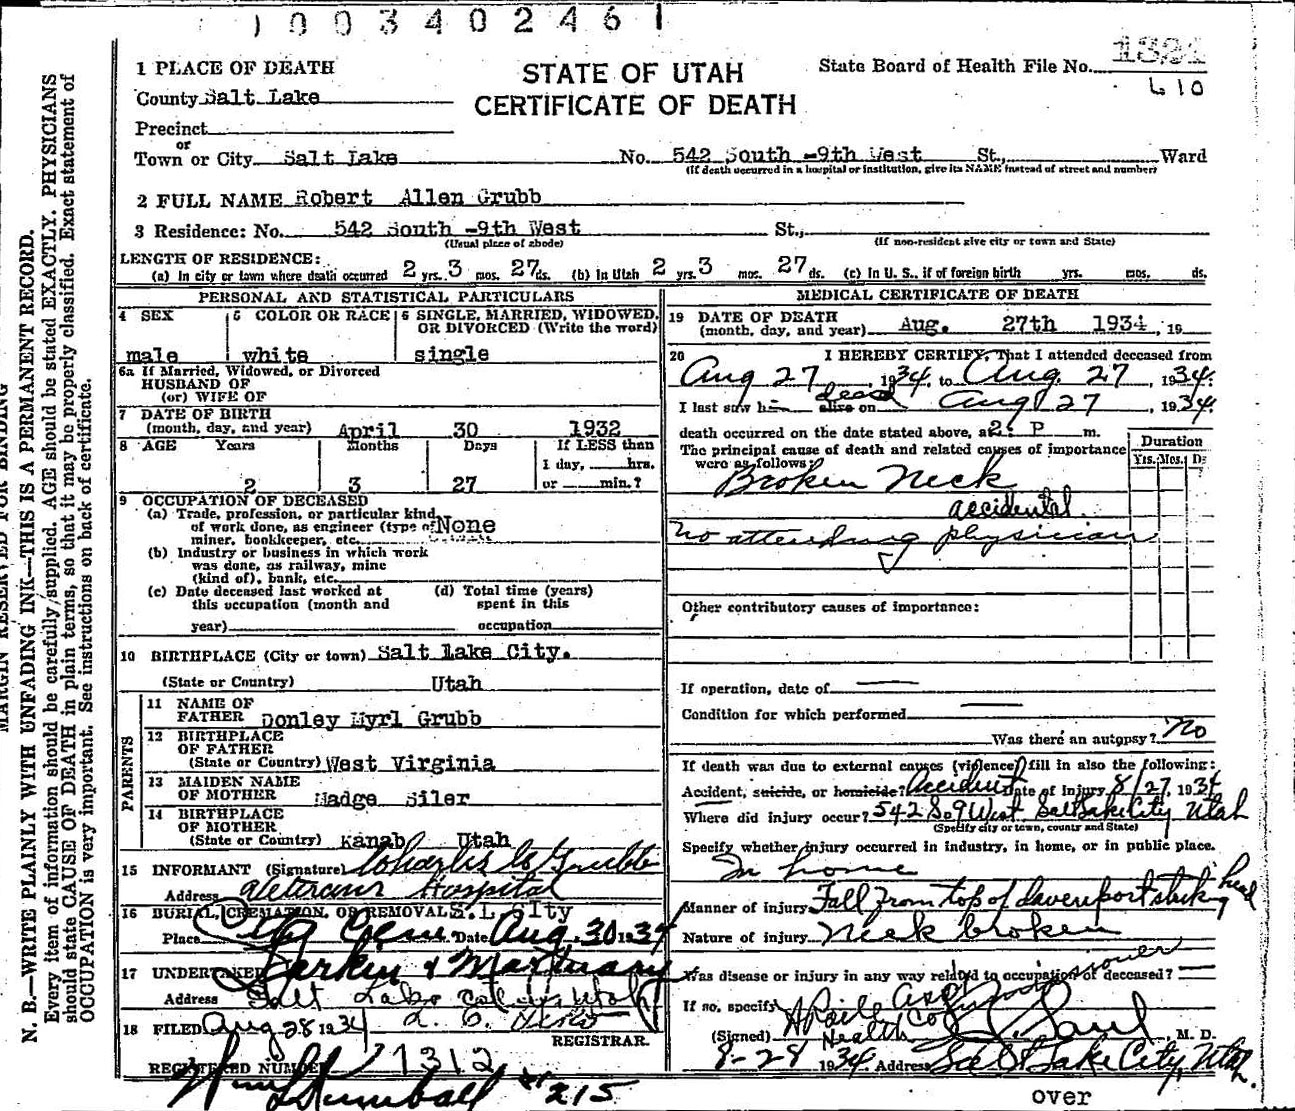 1003402461
1 PLACE OF DEATH
STATE OF UTAH
CERTIFICATE OF DEATH
State Board of Health File No. 1321
610
County Salt Lake
Precinct
or
Town or City Salt Lake No. 542 South -9th West St., Ward
(If death occurred in a hospital or institution, give its NAME instead of street and number)
2 FULL NAME Robert Allen Grubb
3 Residence: No. 542 South -9th West St.,
(Usual place of abode) (If non-resident give city or town and State)
LENGTH OF RESIDENCE:
(a) In city or town where death occurred 2 yrs. 3 mos. 27 ds. (b) In Utah 2 yrs. 3 mos. 27 ds. (c) In U. S., if of foreign birth yrs. mos. ds.
PERSONAL AND STATISTICAL PARTICULARS
4 SEX 5 COLOR OR RACE 6 SINGLE, MARRIED, WIDOWED, OR DIVORCED (Write the word)
male white single
6a If Married, Widowed, or Divorced
HUSBAND OF
(or) WIFE OF
7 DATE OF BIRTH
(month, day, and year) April 30 1932
8 AGE Years Months Days If LESS than
1 day, hrs.
2 3 27 or min.?
9 OCCUPATION OF DECEASED
(a) Trade, profession, or particular kind
of work done, as engineer (type of None
miner, bookkeeper, etc.
(b) Industry or business in which work
was done, as railway, mine
(kind of), bank, etc.
(c) Date deceased last worked at (d) Total time (years)
this occupation (month and spent in this
year) occupation
10 BIRTHPLACE (City or town) Salt Lake City.
(State or Country) Utah
PARENTS
11 NAME OF
FATHER Donley Myrl Grubb
12 BIRTHPLACE
OF FATHER
(State or Country) West Virginia
13 MAIDEN NAME
OF MOTHER Madge Siler
14 BIRTHPLACE
OF MOTHER
(State or Country) Kanab Utah
15 INFORMANT (Signature) Charles W Grubb
Address Veterans Hospital
16 BURIAL, CREMATION, OR REMOVAL S.L. City
Place City Cem Date Aug. 30 1934
17 UNDERTAKER Larkin & Mortuary
Address Salt Lake City Utah
18 FILED Aug 28 1934
REGISTRAR.
REGISTERED NUMBER 1312
Kimball # 215
MEDICAL CERTIFICATE OF DEATH
19 DATE OF DEATH
(month, day, and year) Aug. 27th 1934, 19
20 I HEREBY CERTIFY, That I attended deceased from
Aug 27, 1934. to Aug. 27, 1934.
dead
I last saw him alive on Aug 27, 1934.
death occurred on the date stated above, at 2: P m.
Duration
Yrs. Mos. Ds
The principal cause of death and related causes of importance
were as follows:
Broken Neck
accidental.
No attending physician
Other contributory causes of importance:
If operation, date of
Condition for which performed
Was there an autopsy? No
If death was due to external causes (violence) fill in also the following:
Accident, suicide, or homicide? Accident Date of injury 8/27, 1934
Where did injury occur? 542 So 9 West Salt Lake City Utah
(Specify city or town, county and State)
Specify whether injury occurred in industry, in home, or in public place.
In home
Manner of injury Fall from top of davenport striking head
Nature of injury Neck broken
Was disease or injury in any way related to occupation of deceased?
If so, specify
Health Commissioner
(Signed) Paul M. D.
8-28 1934. Address Salt Lake City, Utah.
over
MARGIN RESERVED FOR BINDING
N. B.—WRITE PLAINLY WITH UNFADING INK—THIS IS A PERMANENT RECORD.
Every item of information should be carefully supplied. AGE should be stated EXACTLY. PHYSICIANS
should state CAUSE OF DEATH in plain terms, so that it may be properly classified. Exact statement of
OCCUPATION is very important. See instructions on back of certificate.